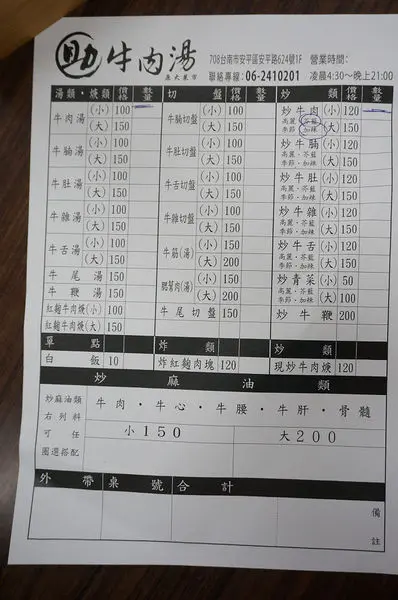 助牛肉湯
原大菜市
708台南市安平區安平路624號1F 營業時間:
聯絡專線:06-2410201 凌晨4:30~晚上21:00
湯類・燴類 價格 數量 切盤 價格 數量 炒類 價格 數量
牛肉湯 (小) 100 牛腩切盤 (小) 100 炒牛肉 (小) 120
(大) 150 (大) 150 高麗・芥藍 季節・加辣 (大) 150
牛腩湯 (小) 100 牛肚切盤 (小) 100 炒牛腩 (小) 120
(大) 150 (大) 150 高麗・芥藍 季節・加辣 (大) 150
牛肚湯 (小) 100 牛舌切盤 (小) 100 炒牛肚 (小) 120
(大) 150 (大) 150 高麗・芥藍 季節・加辣 (大) 150
牛雜湯 (小) 100 牛雜切盤 (小) 100 炒牛雜 (小) 120
(大) 150 (大) 150 高麗・芥藍 季節・加辣 (大) 150
牛舌湯 (小) 100 牛筋(湯) (小) 150 炒牛舌 (小) 120
(大) 150 (大) 200 高麗・芥藍 季節・加辣 (大) 150
牛尾湯 150 腮幫肉(湯) (小) 150 炒青菜 (小) 50
牛鞭湯 150 (大) 200 高麗・芥藍 季節・加辣 (大) 100
紅麴牛肉燴(小) 100 牛尾切盤 150 炒牛鞭 200
紅麴牛肉燴(大) 150
單點 炸類 類
白飯 10 炸紅麴肉塊 120 現炒牛肉燴 120
炒麻油類
炒麻油類
右列料
可任
圈選搭配
牛肉・牛心・牛腰・牛肝・骨髓
小150 大200
外帶 桌號 合計
備註